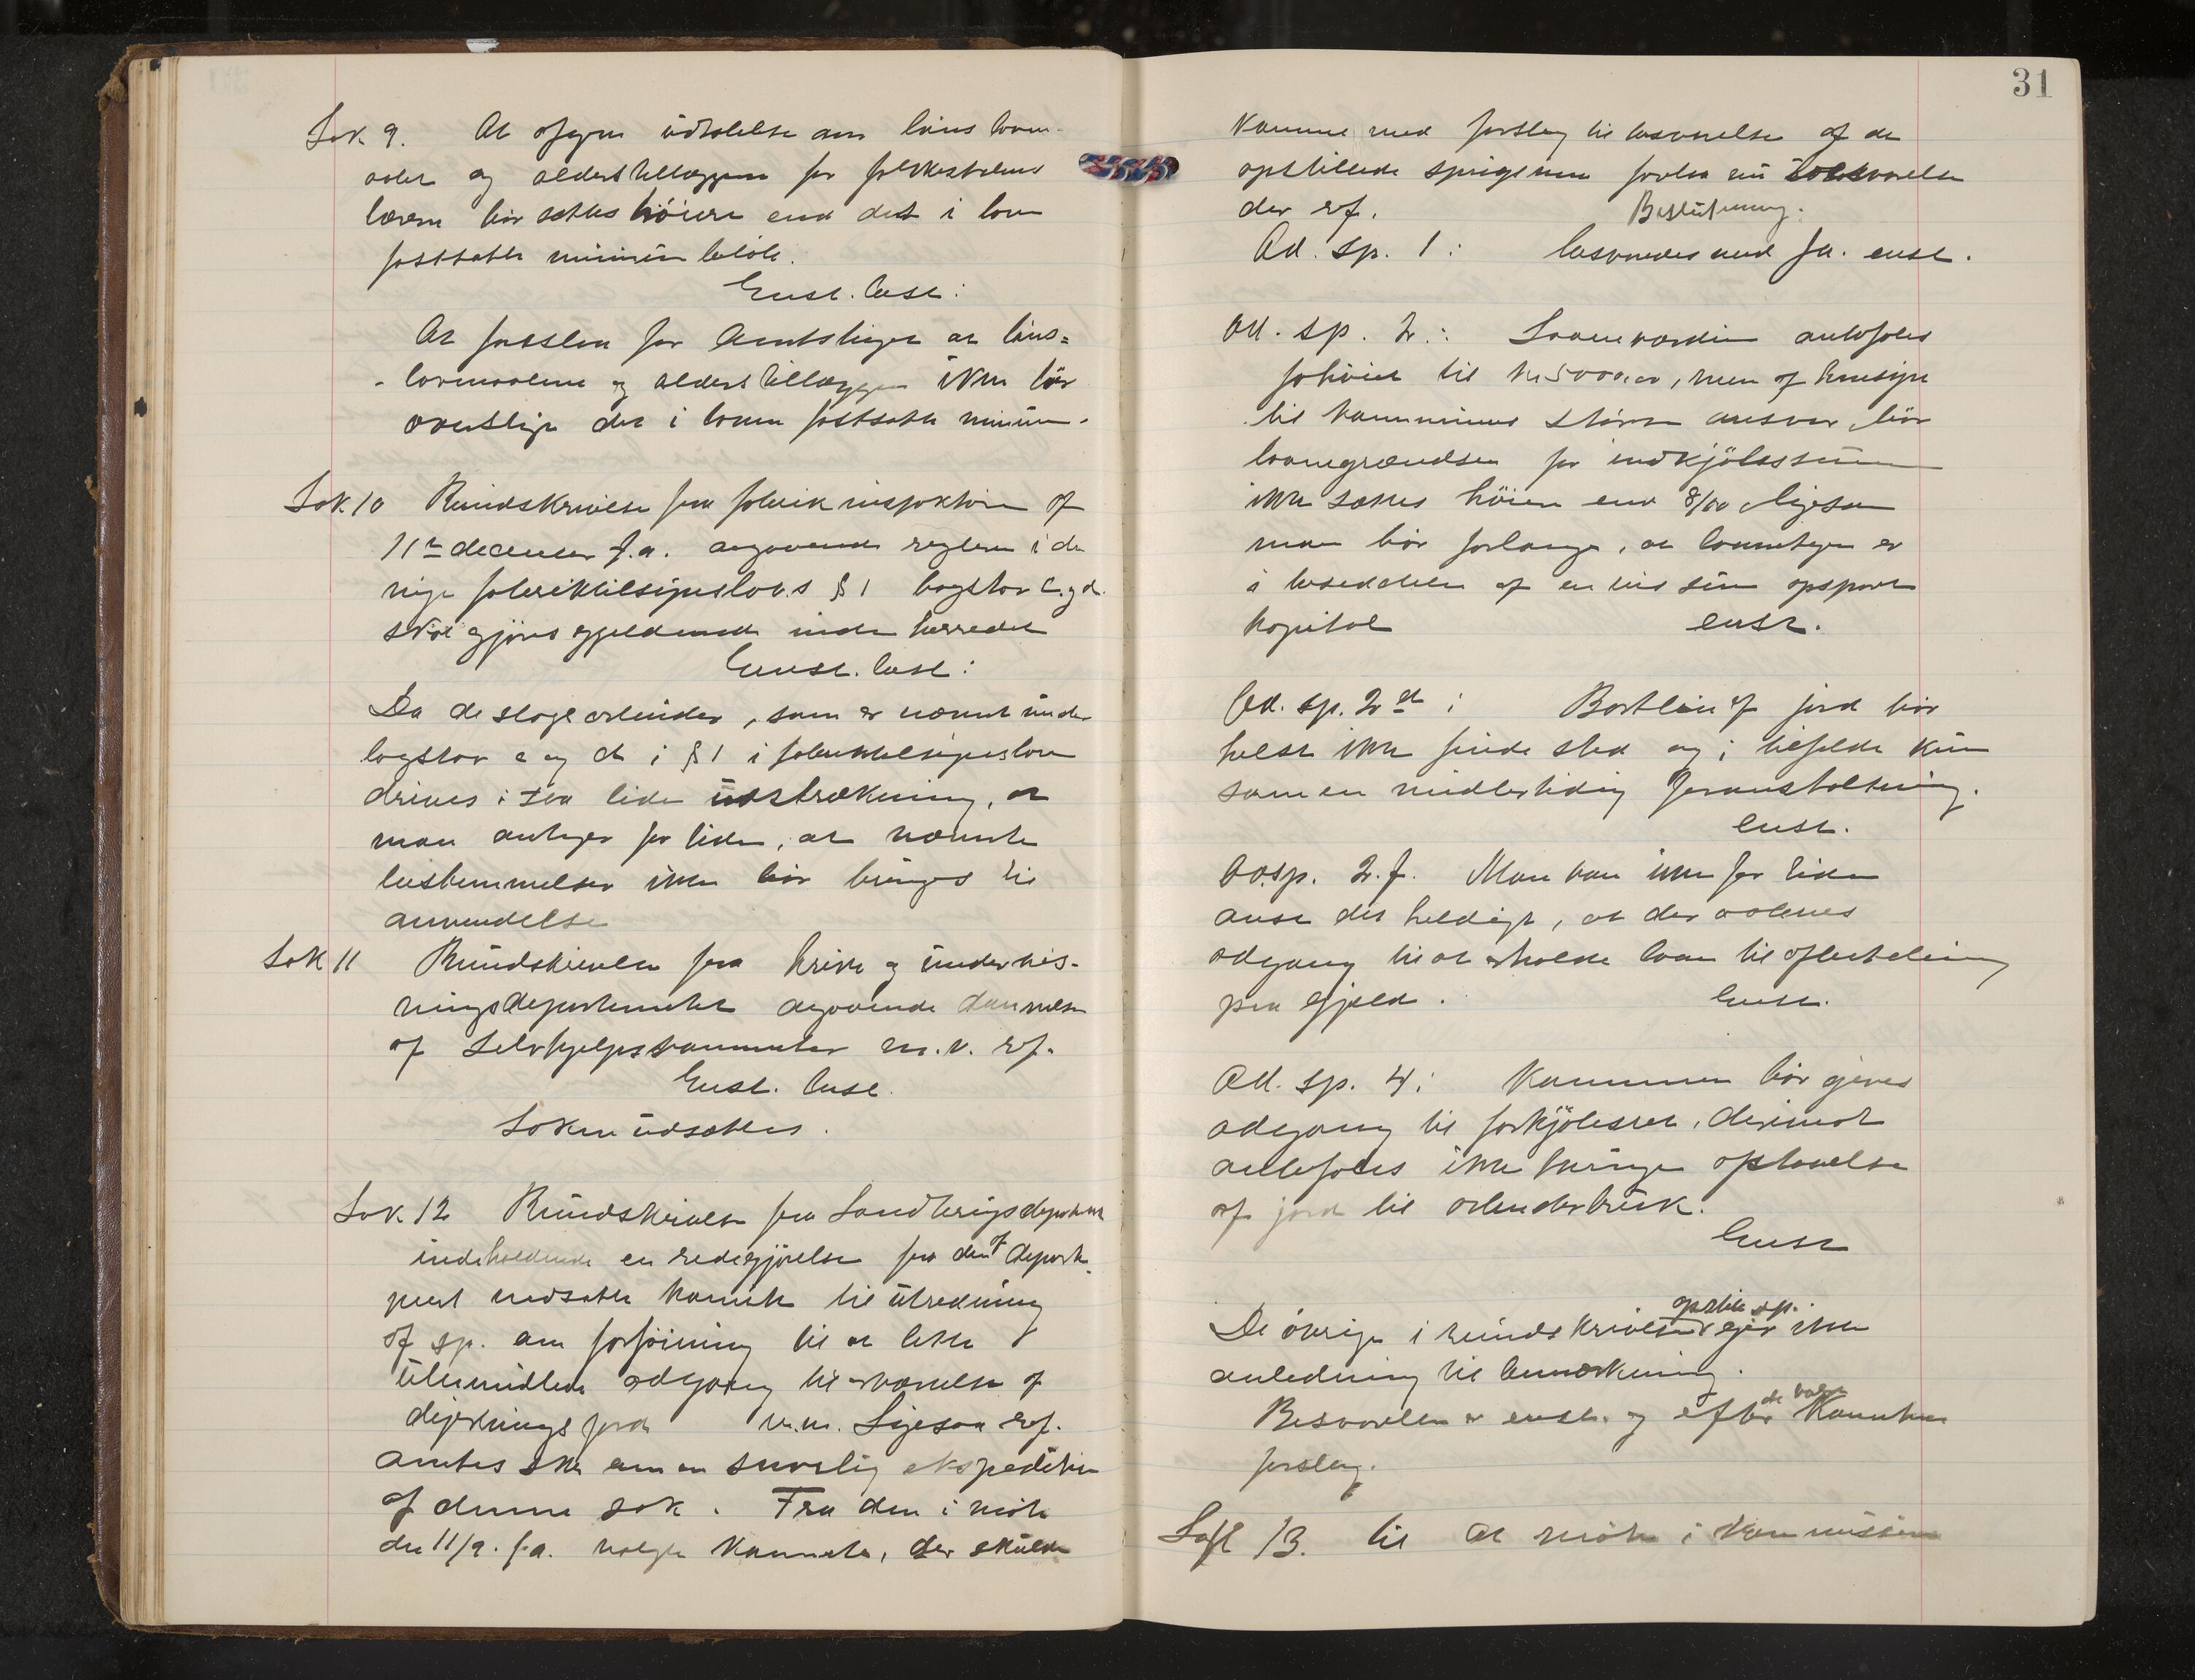 31
Sak 9. At afgive udtalelse om løns kom-
og alderstillæggene for folkeskolens
lærere bør sættes høiere end det i loven
fastsatte minimumbeløb.
Enst. besl:
At foreslaa for Amtstinget at løns-
og alderstillæggene ikke bør
overstige det i loven fastsatte minimum.
Sak 10 Rundskrivelse fra fabrikinspektøren af
11te december f.a. angaaende reglerne i den
nye fabriktilsynslovs § 1 bogstav c. og d.
skal gjøres gjeldende inden herredet
Enst. besl:
Da de slags arbeider, som er nævnt under
bogstav c og d i § 1 i fabriktilsynsloven
drives i saa liden utstrækning, at
man antager for tiden, at nævnte
bestemmelser ikke bør bringes til
anvendelse
Sak 11 Rundskrivelse fra kirke og undervis-
ningsdepartementet angaaende dannelse
af Selvhjelpskommuter m.v. ref.
Enst. besl.
Saken udsættes.
Sak 12 Rundskrivelse fra Landbrugsdepartem
indeholdende en redegjørelse fra den af depart.
nedsatte komite til utredning
af sp. om forføining til at lette
ubemidlede adgang til erværvelse af
dyrkningsjord m.m. Ligesaa ref.
amtes skr om en snarlig ekspedition
af denne sak. Fra den i møte
den 11/9. f.a. valgte komite, der skulde
komme med forslag til besvarelse af de
opstillede spørgsmaal forelaa nu besvarelse
der ref. Beslutning:
Ad. sp. 1: besvaredes med Ja. enst.
Ad. sp. 2.: Laaneværdien anbefales
forhøiet til kr 5000,00, men af hensyn
til kommunens større ansvar, bør
laanegrændsen for indkjøbssum
ikke sættes høiere end 8/10 ligesom
man bør forlange, at laantageren er
i besiddelse af en vis sum opspart
kapital enst.
Ad. sp. 2 d: Bortleie af jord bør
helst ikke finde sted og i tilfelde kun
som en midlertidig foranstaltning.
enst.
Ad.sp. 2.f. Man kan ikke for tiden
anse det heldigt, at der aabnes
adgang til at erholde laan til afbetaling
paa gjæld. Enst.
Ad. sp. 4: Kommunen bør gives
adgang til forkjøbsret, derimot
anbefales ikke tvungen afstaaelse
af jord til arbeiderbruk.
Enst
De øvrige i rundskrivelsen opstill. sp. gir ikke
anledning til bemærkning.
Besvarelsen er enst. og efter de valgte Komites
forslag.
Sak 13. til at møte i kommissionen